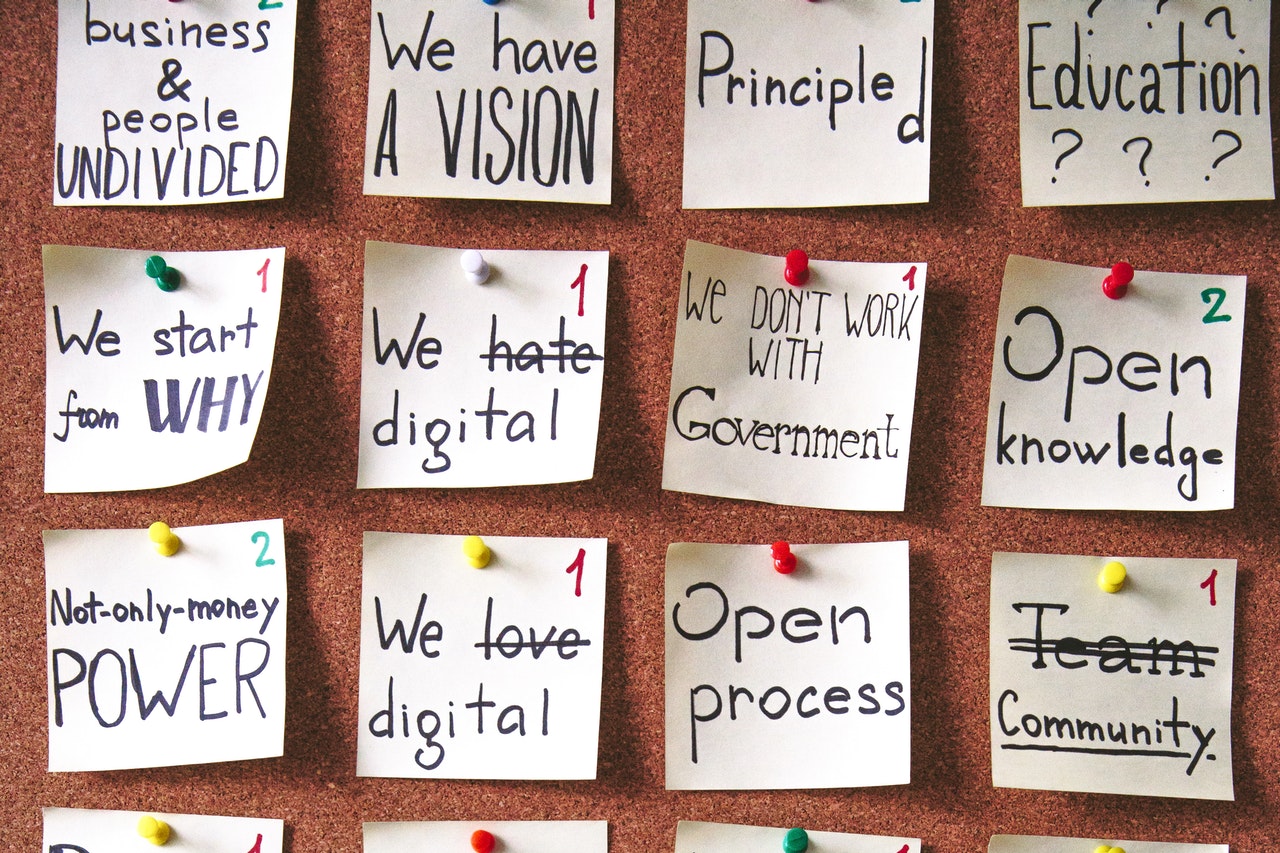 2
business
&
people
UNDIVIDED
1
We have
A VISION
2
Principled
? ? ?
Education
? ? ?
1
We start
from WHY
1
We hate
digital
1
We DON'T WORK
WITH
Government
2
Open
knowledge
2
Not-only-money
POWER
1
We love
digital
Open
process
1
Team
Community.
1
1